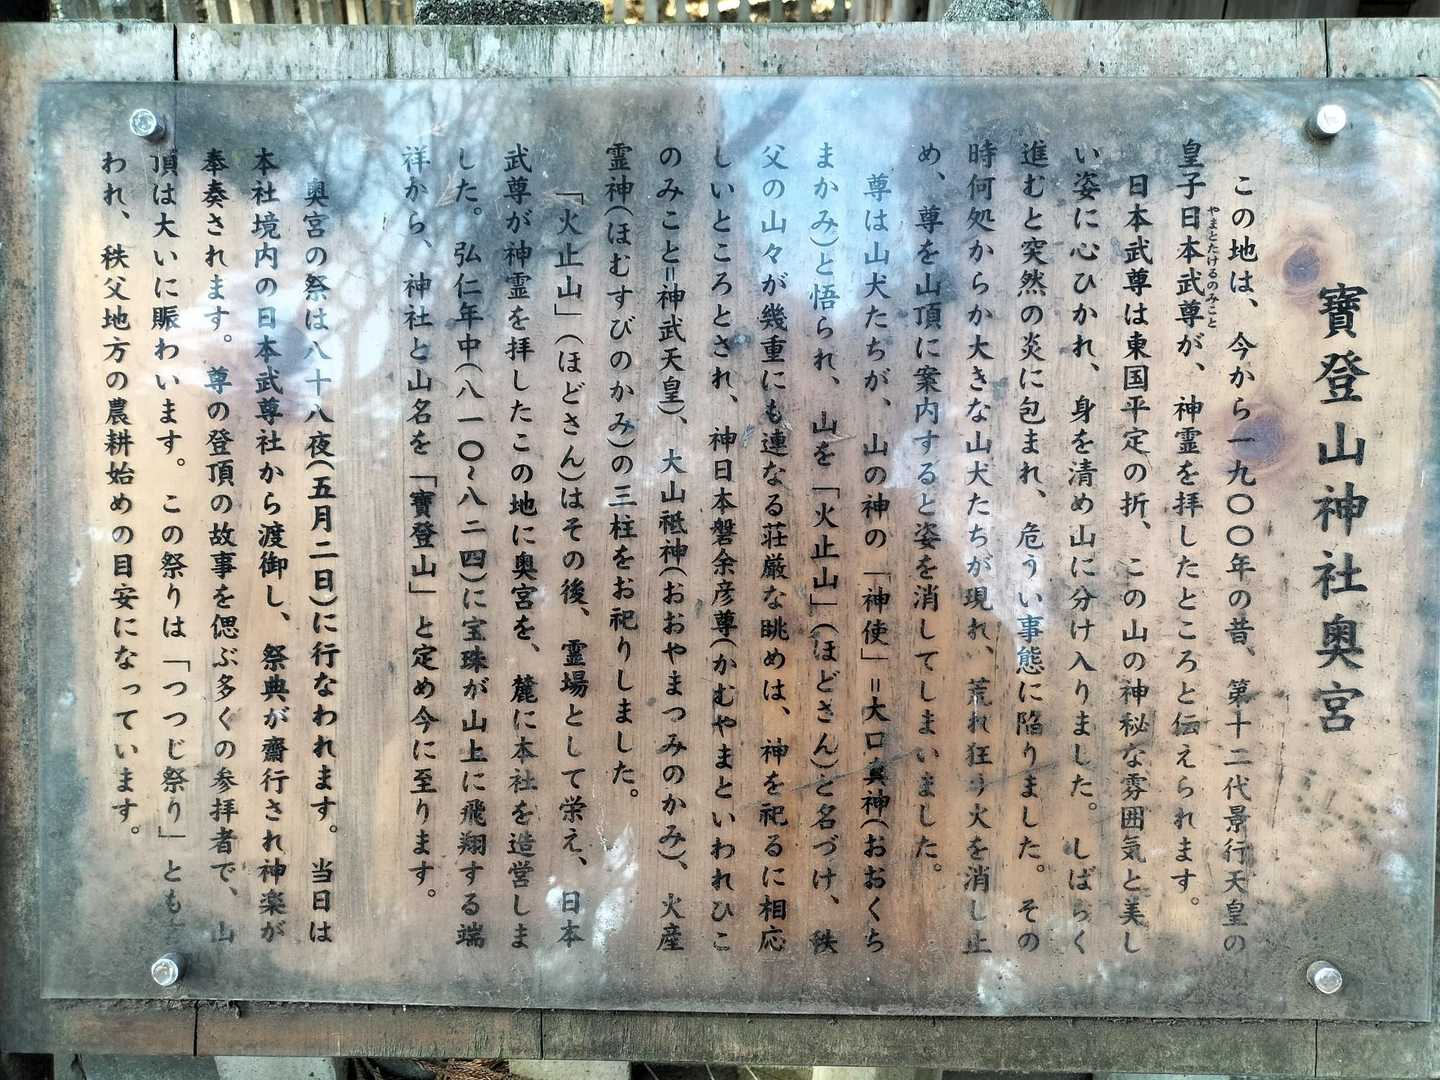 寶登山神社奥宮
この地は、今から一九〇〇年の昔、第十二代景行天皇の
皇子日本武尊が、神霊を拝したところと伝えられます。
やまとたけるのみこと
日本武尊は東国平定の折、この山の神秘な雰囲気と美し
い姿に心ひかれ、身を清め山に分け入りました。しばらく
進むと突然の炎に包まれ、危うい事態に陥りました。その
時何処からか大きな山犬たちが現れ、荒れ狂う火を消し止
め、尊を山頂に案内すると姿を消してしまいました。
尊は山犬たちが、山の神の「神使」=大口真神(おおくち
まかみ)と悟られ、山を「火止山」(ほどさん)と名づけ、秩
父の山々が幾重にも連なる荘厳な眺めは、神を祀るに相応
しいところとされ、神日本磐余彦尊(かむやまといわれひこ
のみこと=神武天皇)、大山祗神(おおやまつみのかみ)、火産
霊神(ほむすびのかみ)の三柱をお祀りしました。
「火止山」(ほどさん)はその後、霊場として栄え、日本
武尊が神霊を拝したこの地に奥宮を、麓に本社を造営しま
した。弘仁年中(八一〇〜八二四)に宝珠が山上に飛翔する端
祥から、神社と山名を「寶登山」と定め今に至ります。
奥宮の祭は八十八夜(五月二日)に行なわれます。当日は
本社境内の日本武尊社から渡御し、祭典が齋行され神楽が
奉奏されます。尊の登頂の故事を偲ぶ多くの参拝者で、山
頂は大いに賑わいます。この祭りは「つつじ祭り」とも
われ、秩父地方の農耕始めの目安になっています。